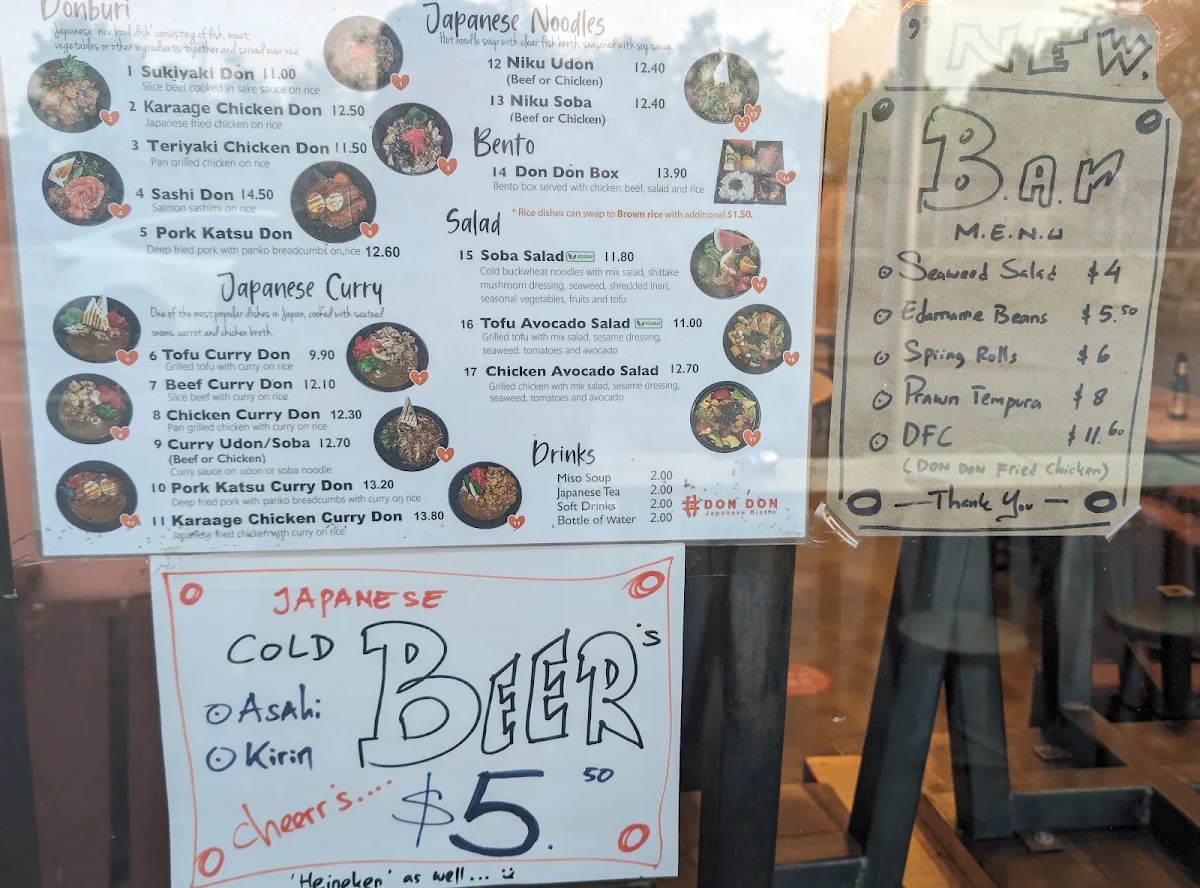 Donburi
Japanese rice bowl dish consisting of fish, meat,
vegetables or other ingredients together and served over rice.
1 Sukiyaki Don 11.00
Slice beef cooked in sake sauce on rice
2 Karaage Chicken Don 12.50
Japanese fried chicken on rice
3 Teriyaki Chicken Don 11.50
Pan grilled chicken on rice
4 Sashi Don 14.50
Salmon sashimi on rice
5 Pork Katsu Don
Deep fried pork with panko breadcumbs on rice 12.60
Japanese Curry
One of the most popular dishes in Japan, cooked with sauteed
onions, carrot and chicken broth.
6 Tofu Curry Don 9.90
Grilled tofu with curry on rice
7 Beef Curry Don 12.10
Slice beef with curry on rice
8 Chicken Curry Don 12.30
Pan grilled chicken with curry on rice
9 Curry Udon/Soba 12.70
(Beef or Chicken)
Curry sauce on udon or soba noodle
10 Pork Katsu Curry Don 13.20
Deep fried pork with panko breadcumbs with curry on rice
11 Karaage Chicken Curry Don 13.80
Japanese fried chicken with curry on rice
Japanese Noodles
Hot noodle soup with clear fish broth, seasoned with soy sauce.
12 Niku Udon 12.40
(Beef or Chicken)
13 Niku Soba 12.40
(Beef or Chicken)
Bento
14 Don Don Box 13.90
Bento box served with chicken, beef, salad and rice
* Rice dishes can swap to Brown rice with additional $1.50.
Salad
15 Soba Salad VEGAN 11.80
Cold buckwheat noodles with mix salad, shittake
mushroom dressing, seaweed, shredded inari,
seasonal vegetables, fruits and tofu
16 Tofu Avocado Salad VEGAN 11.00
Grilled tofu with mix salad, sesame dressing,
seaweed, tomatoes and avocado
17 Chicken Avocado Salad 12.70
Grilled chicken with mix salad, sesame dressing,
seaweed, tomatoes and avocado
Drinks
Miso Soup 2.00
Japanese Tea 2.00
Soft Drinks 2.00
Bottle of Water 2.00
#DON DON
Japanese Bistro
NEW.
BAR
M.E.N.U
Seaweed Salad $4
Edamame Beans $5.50
Spring Rolls $6
Prawn Tempura $8
DFC $11.60
(DON DON Fried Chicken)
— Thank You —
JAPANESE
COLD BEER's
Asahi
Kirin
cheerr's.... $5.50
'Heineken' as well...